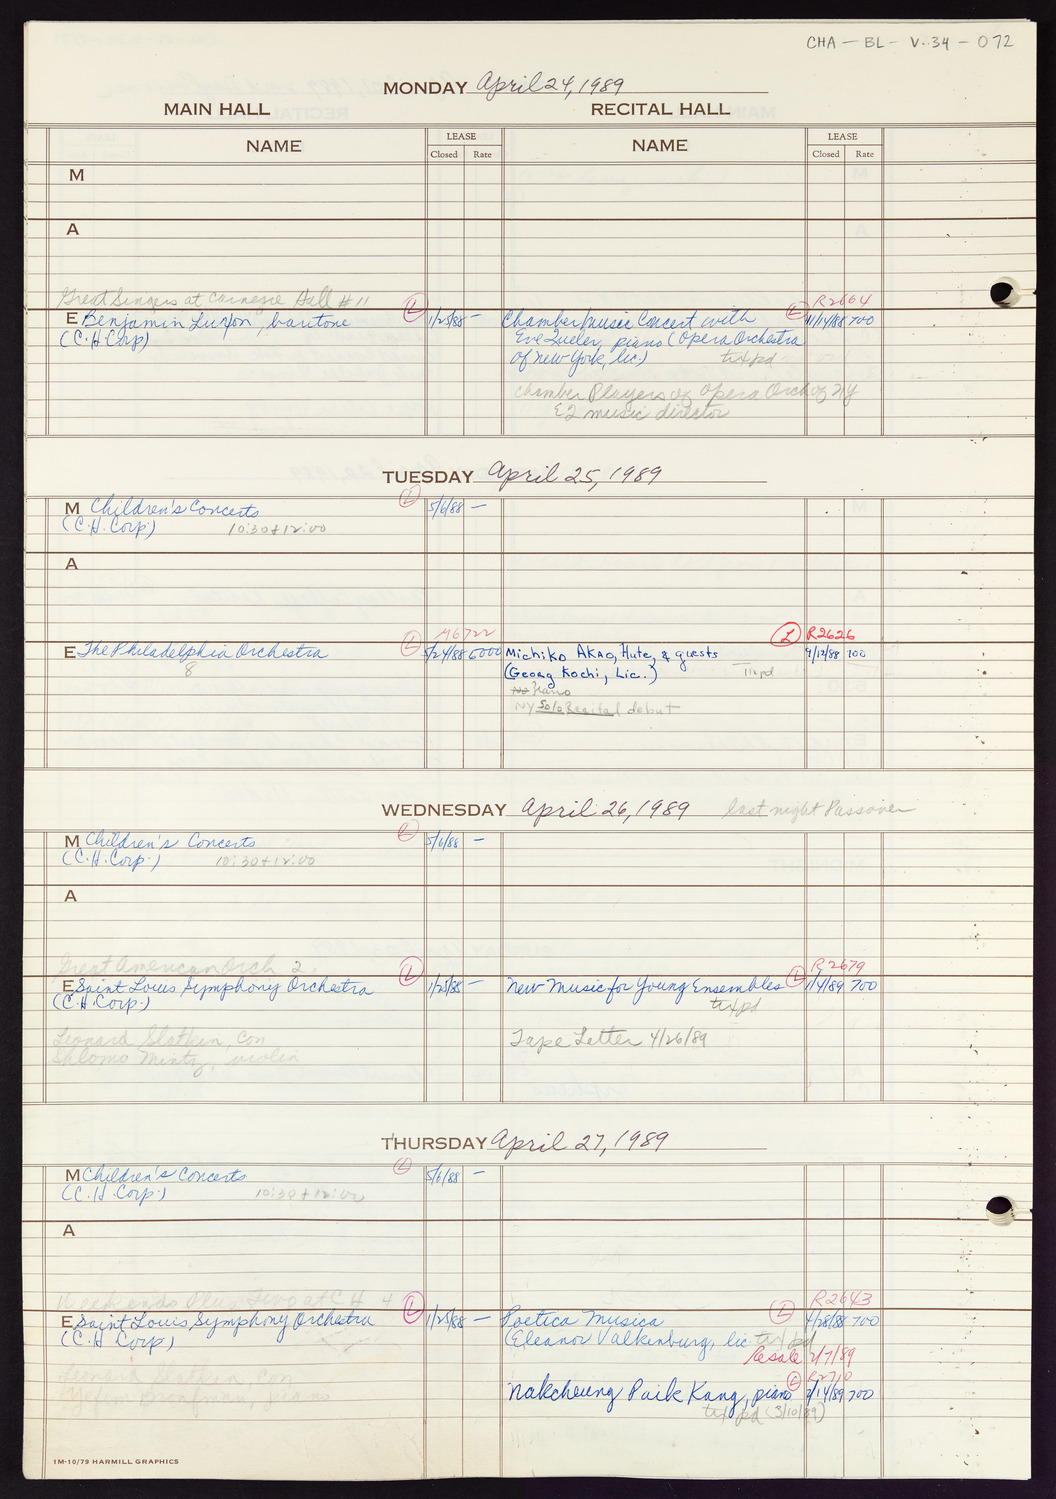 CHA - BL - V. 34 - 072
MONDAY April 24, 1989
MAIN HALL RECITAL HALL
NAME LEASE NAME LEASE
Closed Rate Closed Rate
M
A
Great Singers at Carnegie Hall #11 (L) (L) R2664
E Benjamin Luxon, baritone 1/25/88 — Chamber Music Concert with 11/14/88 700
(C.H. Corp) Eve Queler, piano (Opera Orchestra
of New York, lic.) tix pd
Chamber Players of Opera Orch of NY
EQ music director
TUESDAY April 25, 1989
M Children's Concerts (L) 5/6/88 —
(C.H. Corp.) 10:30 + 12:00
A
M6722 (L) R2626
E The Philadelphia Orchestra (L) 5/24/88 6000 Michiko Akao, flute, & guests 9/12/88 700
8 (Georg Kochi, Lic.) Tix pd
No Piano
NY Solo Recital debut
WEDNESDAY April 26, 1989 last night Passover
M Children's Concerts (L) 5/6/88 —
(C.H. Corp.) 10:30 + 12:00
A
Great American Orch 2 (L) R2679
E Saint Louis Symphony Orchestra 1/25/88 — New Music for Young Ensembles (L) 1/4/89 700
(C.H. Corp.) tix pd
Leonard Slatkin, con Tape Letter 4/26/89
Shlomo Mintz, violin
THURSDAY April 27, 1989
M Children's Concerts (L) 5/6/88 —
(C.H. Corp.) 10:30 + 12:00
A
Weekends Plus Two at C.H. 4 (L) (L) R2643
E Saint Louis Symphony Orchestra 1/25/88 — Poetica Musica 9/28/88 700
(C.H. Corp) (Eleanor Valkenburg, lic tix pd
Resale 2/7/89
Leonard Slatkin, con (L) R2710
Yefim Bronfman, piano Nakcheung Paik Kang, piano 2/14/89 700
tix pd (3/10/89)
1M-10/79 HARMILL GRAPHICS